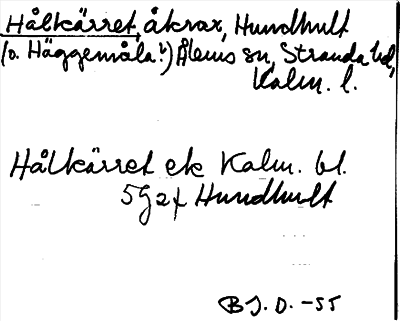 Hålkärret, åkrar, Hundhult
(o. Häggemåla?) Ålems sn, Stranda hd,
Kalm. l.
Hålkärret ek Kalm. bl.
5g2f Hundhult
B J. D. -55